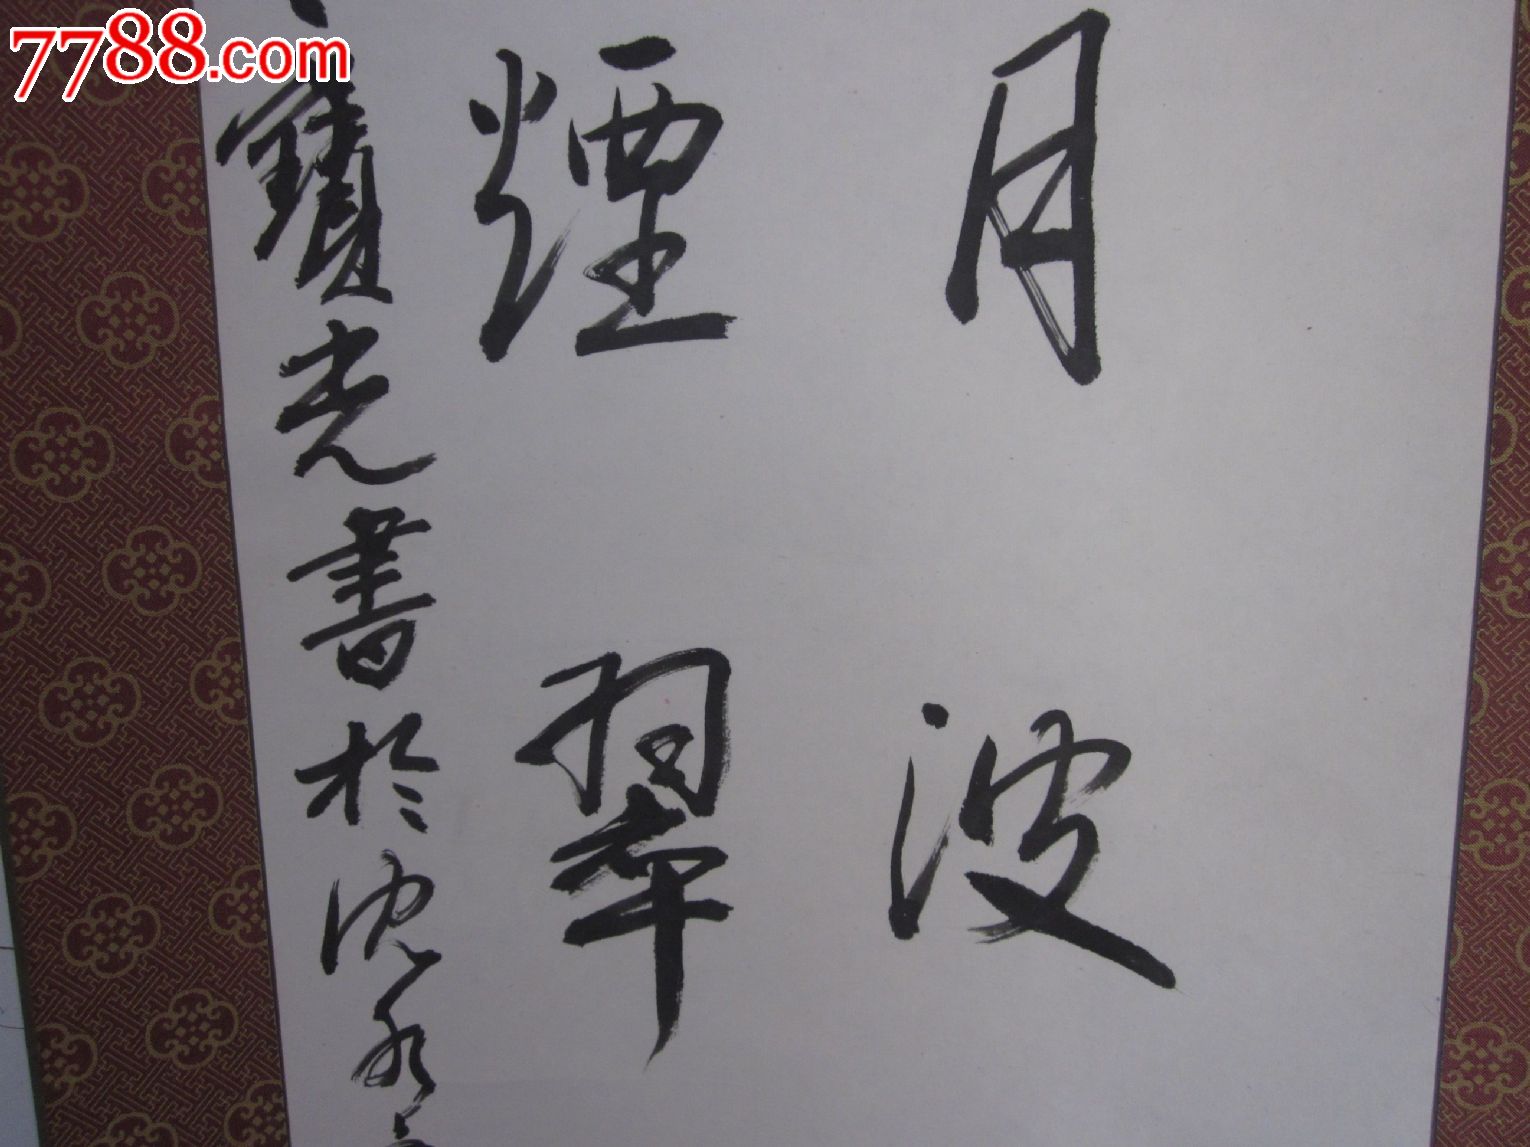 7788.com
月波
煙翠
寶光書於沈水